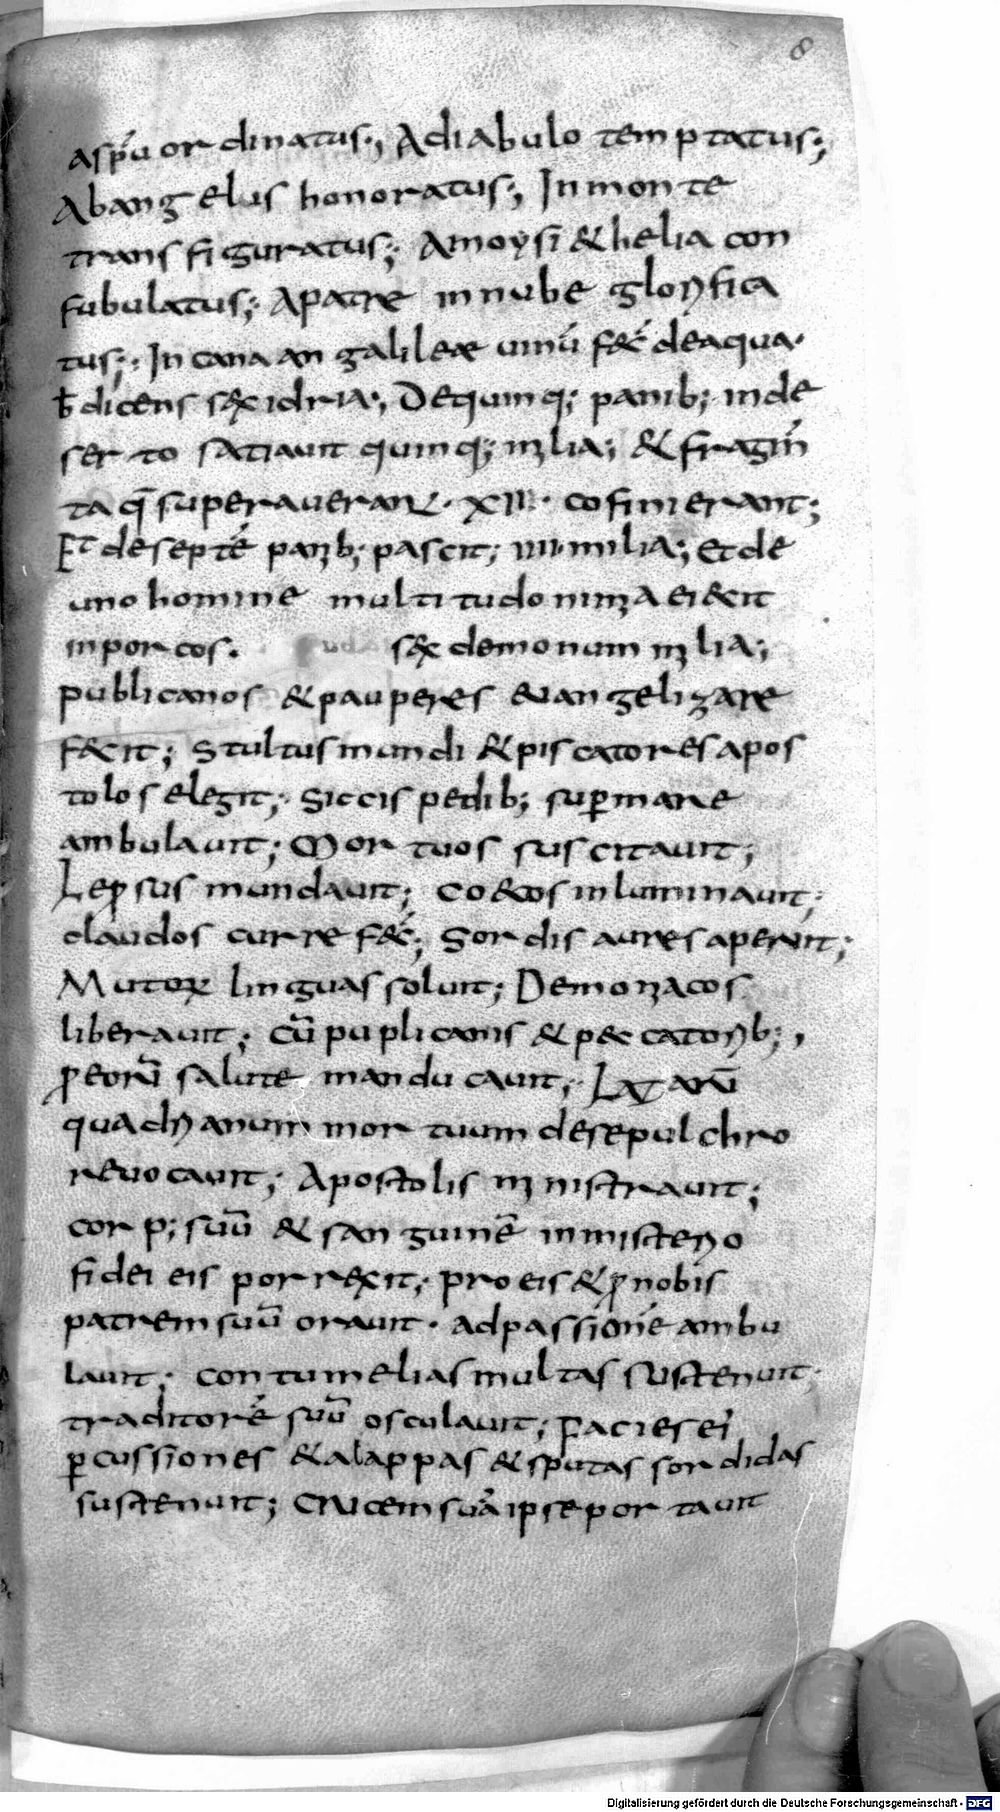 8
aspu᷃ ordinatus; Adiabulo temptatus;
Abangelus honoratus; Inmonte
transfiguratus; Amoysi & helia con
fubulatus; Apatre innube glorifica
tus; In cana an galileae uinū f&͛ deaqua·
ƀdicens s&x idria; Dequinq; panib; inde
serto satiauit quinq; milia; & fragm̄
ta q̄ superauerant· XII· cofinierant;
Et deseptē panib; pascit; IIII·milia; Et de
uno homine multitudo nimia eiecit
inporcos. s&x demonum milia;
publicanos & pauperes euangelizare
fecit; Stultus mundi & piscatores apos
tolos elegit; Siccis pedib; sup̱ mare
ambulauit; Mortuos suscitauit;
Leprosus mundauit; Co&cos inluminauit;
claudos curre fec̄; Sordis aures aperuit;
Mutorꝝ linguas soluit; Demoniacos
liberauit; Cū puplicanis & peccatorib;,
ꝓeorū salute manducauit; Lazarū
quadrianum mortuum desepulchro
reuocauit; Apostolis ministrauit;
corp; suū & sanguinē inmisterio
fidei eis porrexit; pro eis & ꝓnobis
patrem suū orauit· adpassionē ambu
lauit; contumelias multas sustenuit;
traditorē suū osculauit; Facies ei
ꝑcussiones & alappas & sputas sordidas
sustenuit; crucem suā ipse portauit
Digitalisierung gefördert durch die Deutsche Forschungsgemeinschaft - DFG